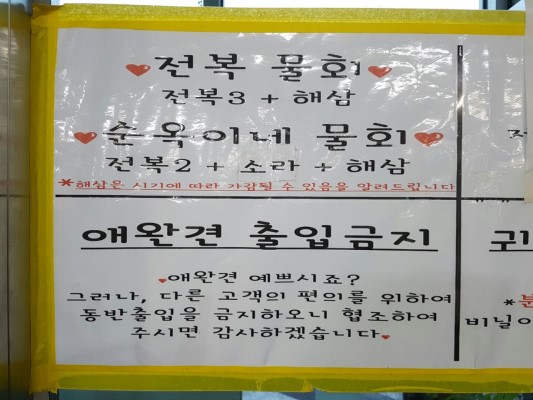 ♥전복 물회♥
전복3 + 해삼
♥순옥이네 물회♥
전복2 + 소라 + 해삼
*해삼은 시기에 따라 가감될 수 있음을 알려드립니다
애완견 출입금지
♥애완견 예쁘시죠?
그러나, 다른 고객의 편의를 위하여
동반출입을 금지하오니 협조하여
주시면 감사하겠습니다♥
전
귀
*분
비닐이